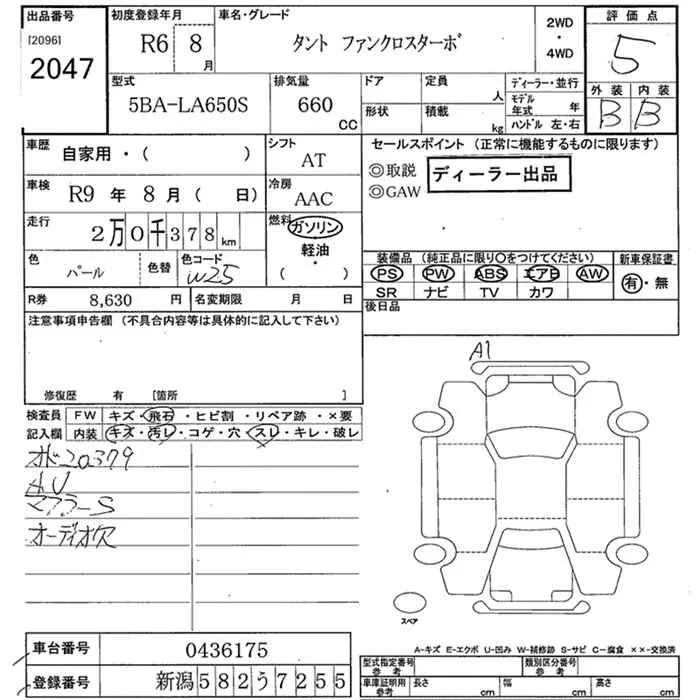 出品番号
[2096]
2047
初度登録年月
R6 8 月
車名・グレード
タント ファンクロスターボ
2WD
・
4WD
評価点
5
外装 内装
B B
型式
5BA-LA650S
排気量
660 CC
ドア
形状
定員 人
積載 kg
ディーラー・並行
モデル年式 年
ハンドル 左・右
車歴 自家用・( )
シフト AT
車検 R9 年 8 月 ( 日)
冷房 AAC
走行 2万0千378km
燃料 ガソリン
軽油・
( )
色 パール 色替 色コード W25
R券 8,630 円 名変期限 月 日
セールスポイント (正常に機能するものに限ります)
◎取説 ディーラー出品
◎GAW
装備品 (純正品に限り〇をつけてください) 新車保証書
PS PW ABS エアB AW 有・無
SR ナビ TV カワ
後日品
注意事項申告欄 (不具合内容等は具体的に記入して下さい)
修復歴 有 [箇所 ]
検査員 FW キズ・飛石・ヒビ割・リペア跡・×要
記入欄 内装 キズ・汚レ・コゲ・穴・スレ・キレ・破レ
オド20379
マフラーS
オーディオ欠
A1
スペア
A-キズ E-エクボ U-凹み W-補修跡 S-サビ C-腐食 ××-交換済
車台番号 0436175
登録番号 新潟582う7255
型式指定番号 参考 類別区分番号 参考
車庫証明用 参考 長さ cm 幅 cm 高さ cm